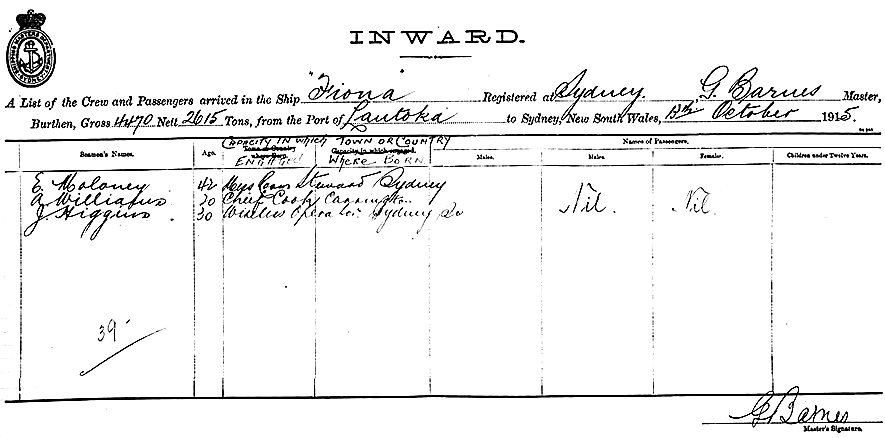 INWARD.
A List of the Crew and Passengers arrived in the Ship "Fiona" Registered at Sydney. G. Barnes Master,
Burthen, Gross 4470 Nett 2615 Tons, from the Port of Lautoka to Sydney, New South Wales, October 1915.
Seamen's Names. Age. CAPACITY IN WHICH ENGAGED TOWN OR COUNTRY Where BORN Males. Names of Passengers. Males. Females. Children under Twelve Years.
E. Moloney 42 Steward Sydney
A. Williams 20 Chief Cook Nil. Nil.
J. Higgins 30 Wireless Sydney
39
G Barnes
Master's Signature.